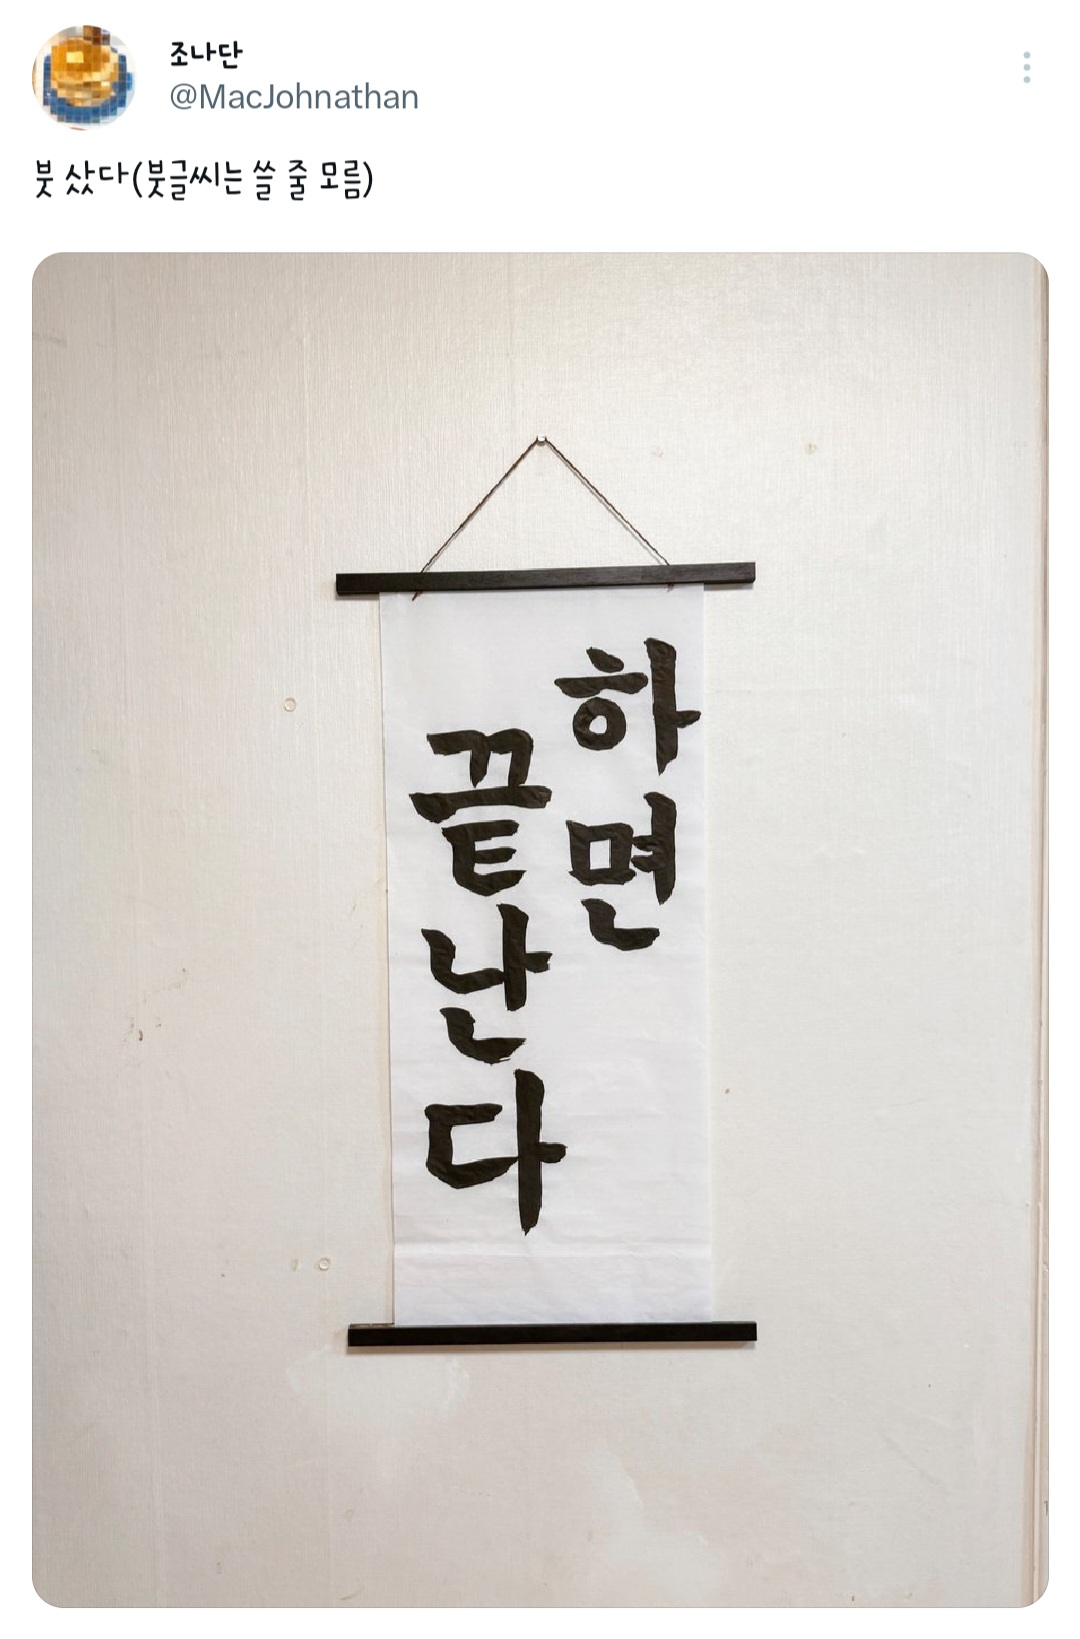 조나단
@MacJohnathan
붓 샀다(붓글씨는 쓸 줄 모름)
하면
끝난다